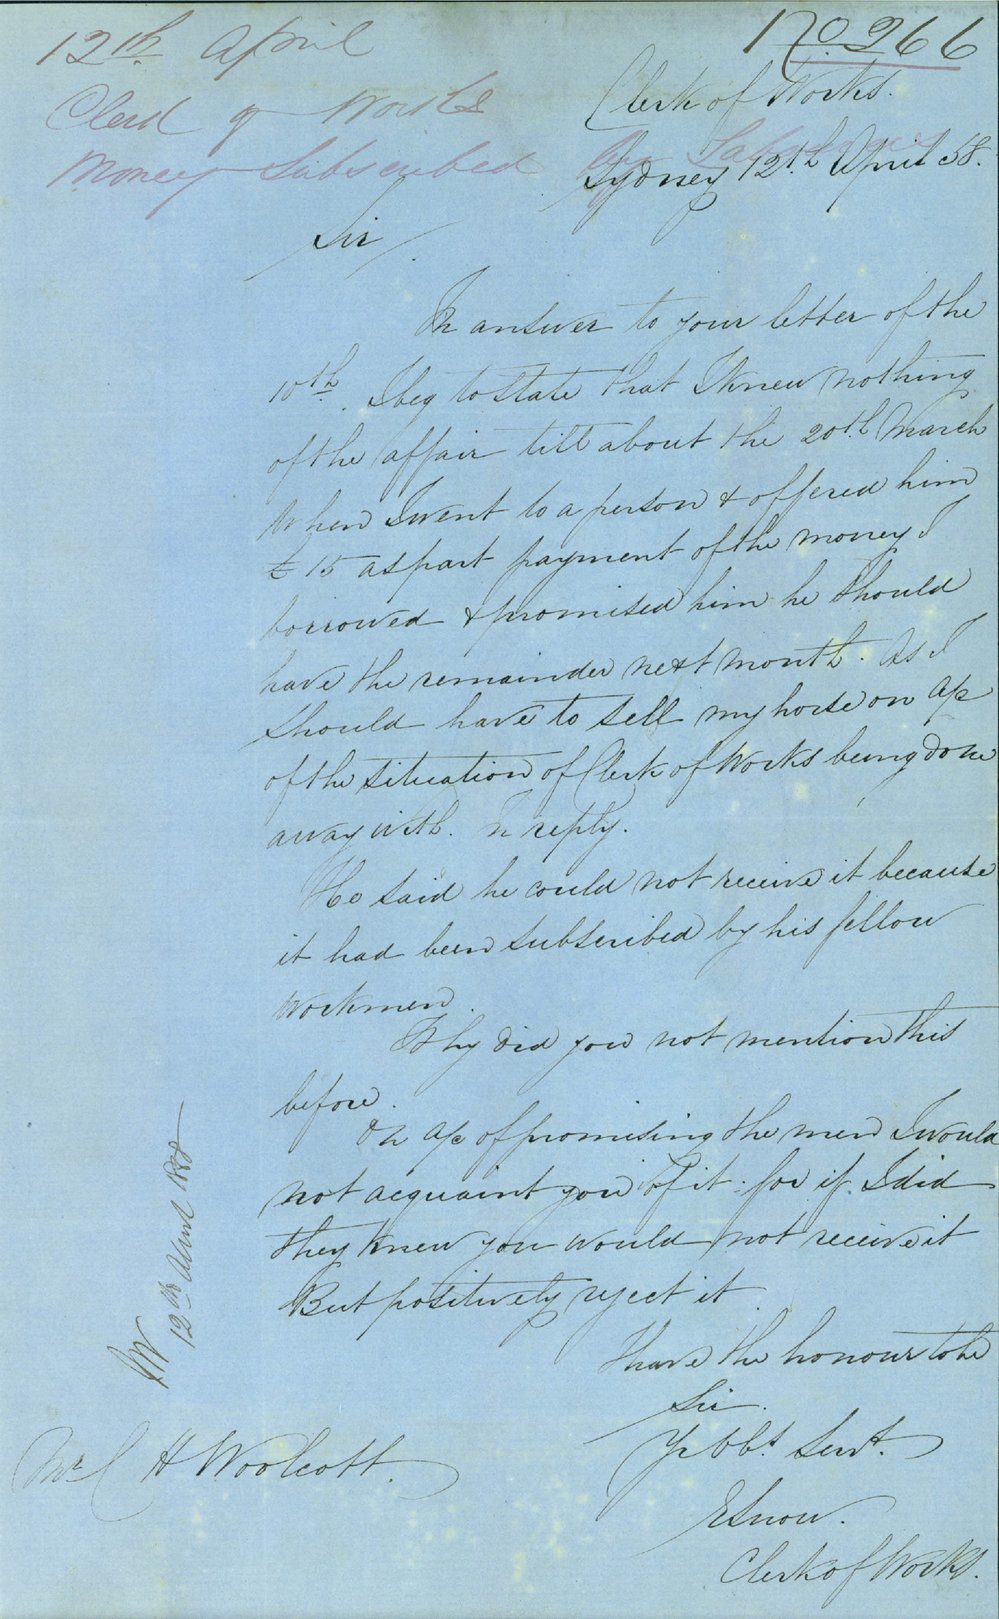 12th April
No 266
Clerk of Works
Money Subscribed by Labourers
Clerk of Works.
Sydney 12th April 58.
Sir
In answer to your letter of the
10th. I beg to state that I knew nothing
of the affair till about the 20th March
When I went to a person & offered him
£15 as part payment of the money I
borrowed & promised him he should
have the remainder next month. As I
should have to sell my horse on a/c
of the situation of Clerk of Works being done
away with. In reply.
He said he could not receive it because
it had been subscribed by his fellow
Workmen.
Why did you not mention this
before.
On a/c of promising the men I would
not acquaint you of it. for if I did
they knew you would not receive it
But positively reject it.
I have the honour to be
Sir.
Yr Obt. Servt.
E Snow.
Clerk of Works.
Mr C H Woolcott.
12th April 1858